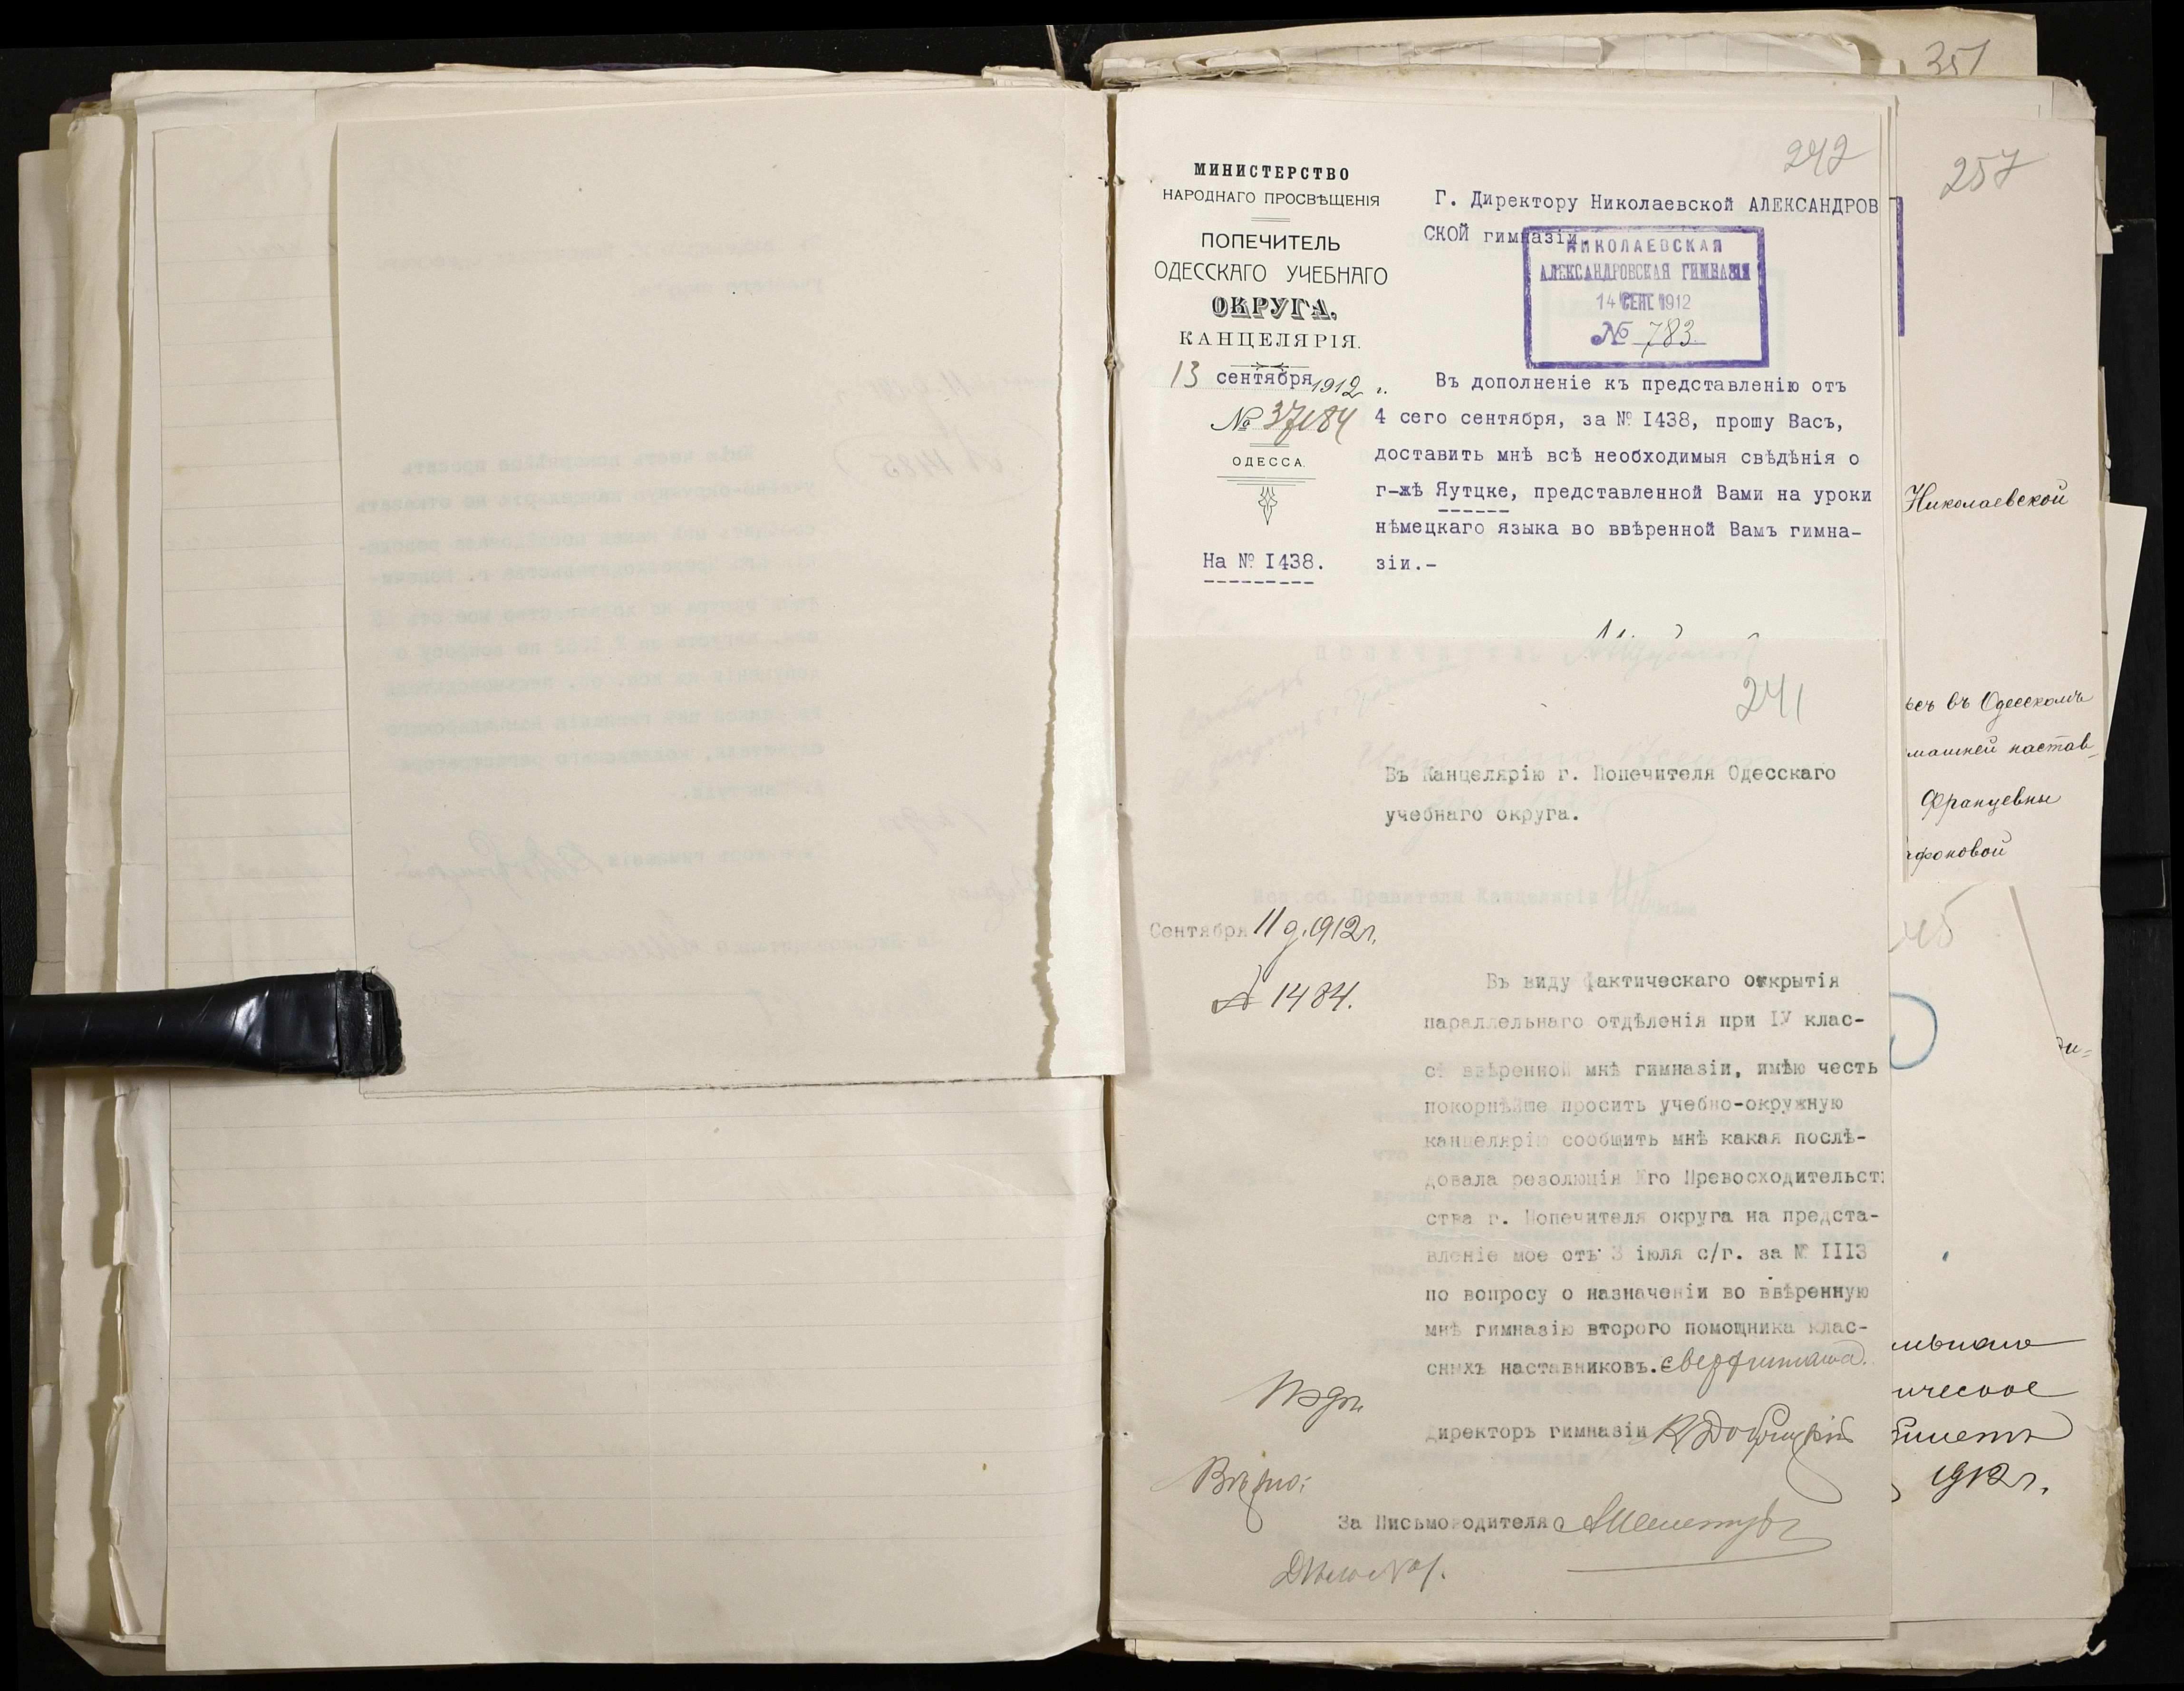 351
257
242
МИНИСТЕРСТВО
НАРОДНАГО ПРОСВѢЩЕНІЯ
ПОПЕЧИТЕЛЬ
ОДЕССКАГО УЧЕБНАГО
ОКРУГА.
КАНЦЕЛЯРІЯ.
13 сентября 1912 г.
№ 37184
ОДЕССА.
На № I438.
Г. Директору Николаевской АЛЕКСАНДРОВ
СКОЙ гимназіи.
НИКОЛАЕВСКАЯ
АЛЕКСАНДРОВСКАЯ ГИМНАЗІЯ
14 СЕНТ. 1912
№ 783.
Въ дополненіе къ представленію отъ
4 сего сентября, за № I438, прошу Васъ,
доставить мнѣ всѣ необходимыя свѣдѣнія о
г-жѣ Яутцке, представленной Вами на уроки
нѣмецкаго языка во ввѣренной Вамъ гимна-
зіи.-
241
Въ Канцелярію г. Попечителя Одесскаго
учебнаго округа.
Сентября 11 д. 1912 г.
№ 1484.
Въ виду фактическаго открытія
параллельнаго отдѣленія при IV клас-
сѣ ввѣренной мнѣ гимназіи, имѣю честь
покорнѣйше просить учебно-окружную
канцелярію сообщить мнѣ какая послѣ-
довала резолюція Его Превосходительст
ства г. Попечителя округа на предста-
вленіе мое отъ 3 іюля с/г. за № III3
по вопросу о назначеніи во ввѣренную
мнѣ гимназію второго помощника клас-
сныхъ наставниковъ.
Директоръ гимназіи
Вѣрно:
За Письмоводителя
Николаевской
въ Одесскомъ
машней настав-
Францевны
фоновой
1912 г.